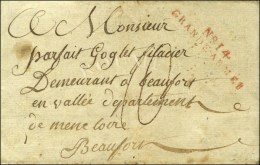 A Monsieur
parfait Goglet filacier
Demeurant à Beaufort
en vallée departement
de mene loire
Beaufort
No 14
GRANDE ARMÉE